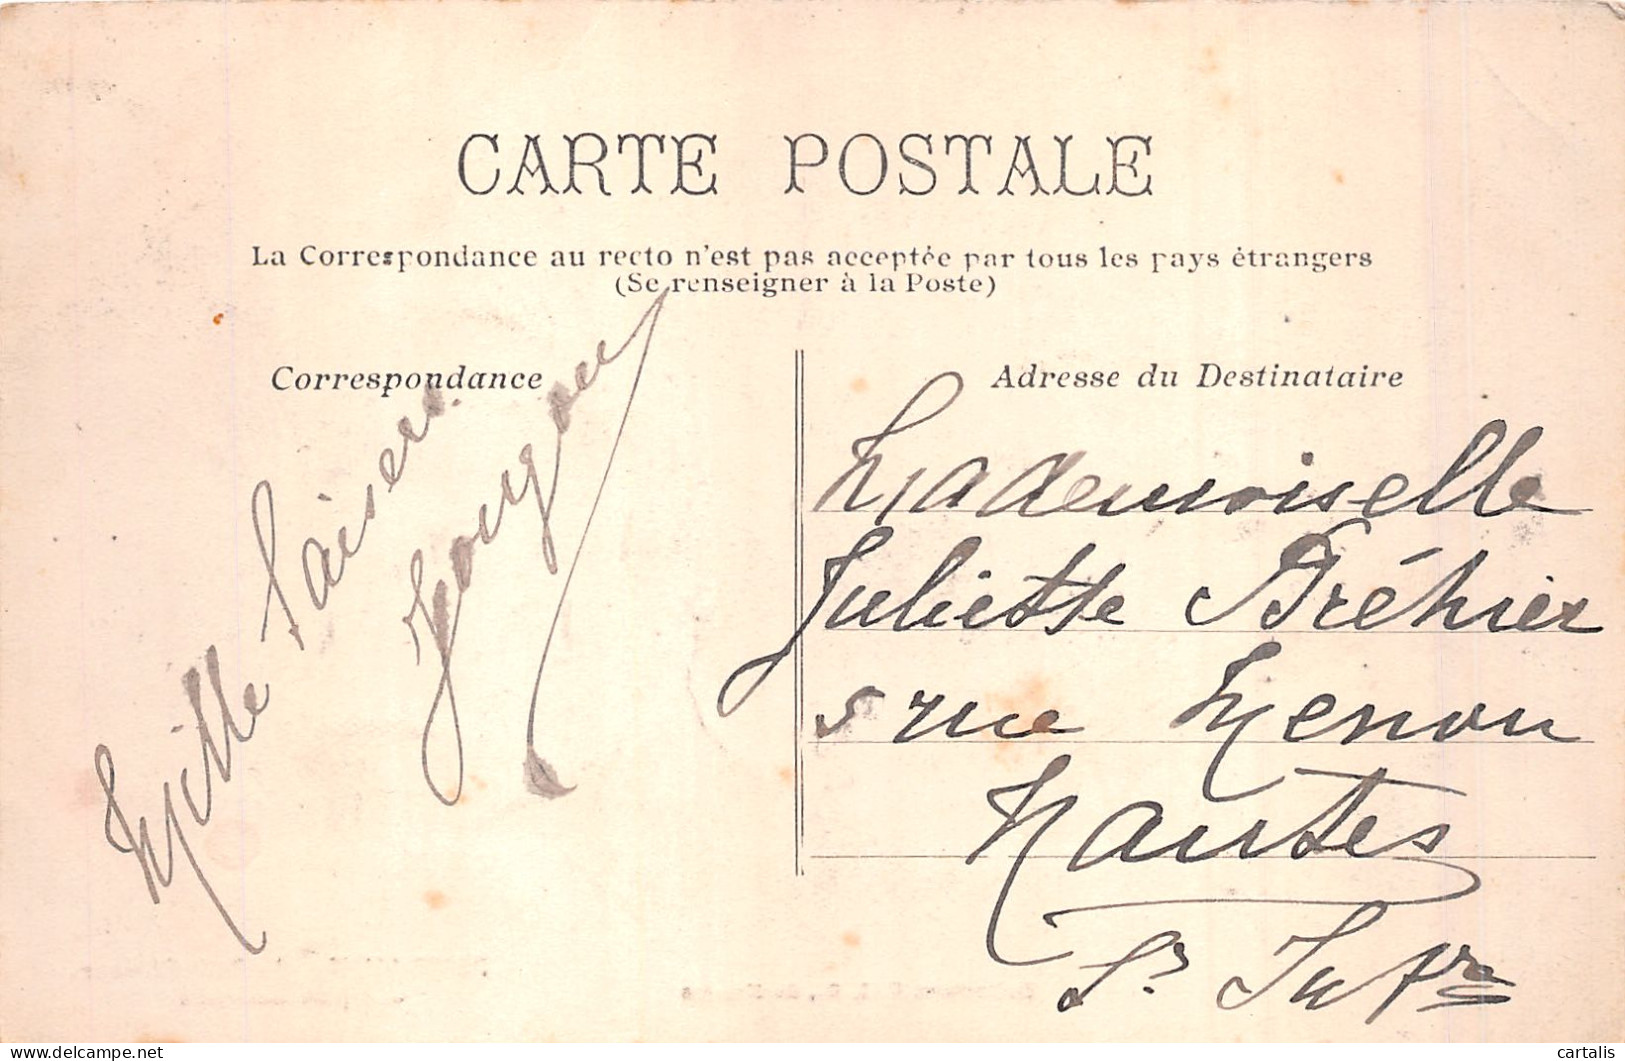 CARTE POSTALE
La Correspondance au recto n'est pas acceptée par tous les pays étrangers
(Se renseigner à la Poste)
Correspondance
Mille baisers
Adresse du Destinataire
Mademoiselle
Juliette Bréhier
5 rue Menou
Nantes
Lre Infre
cartalis